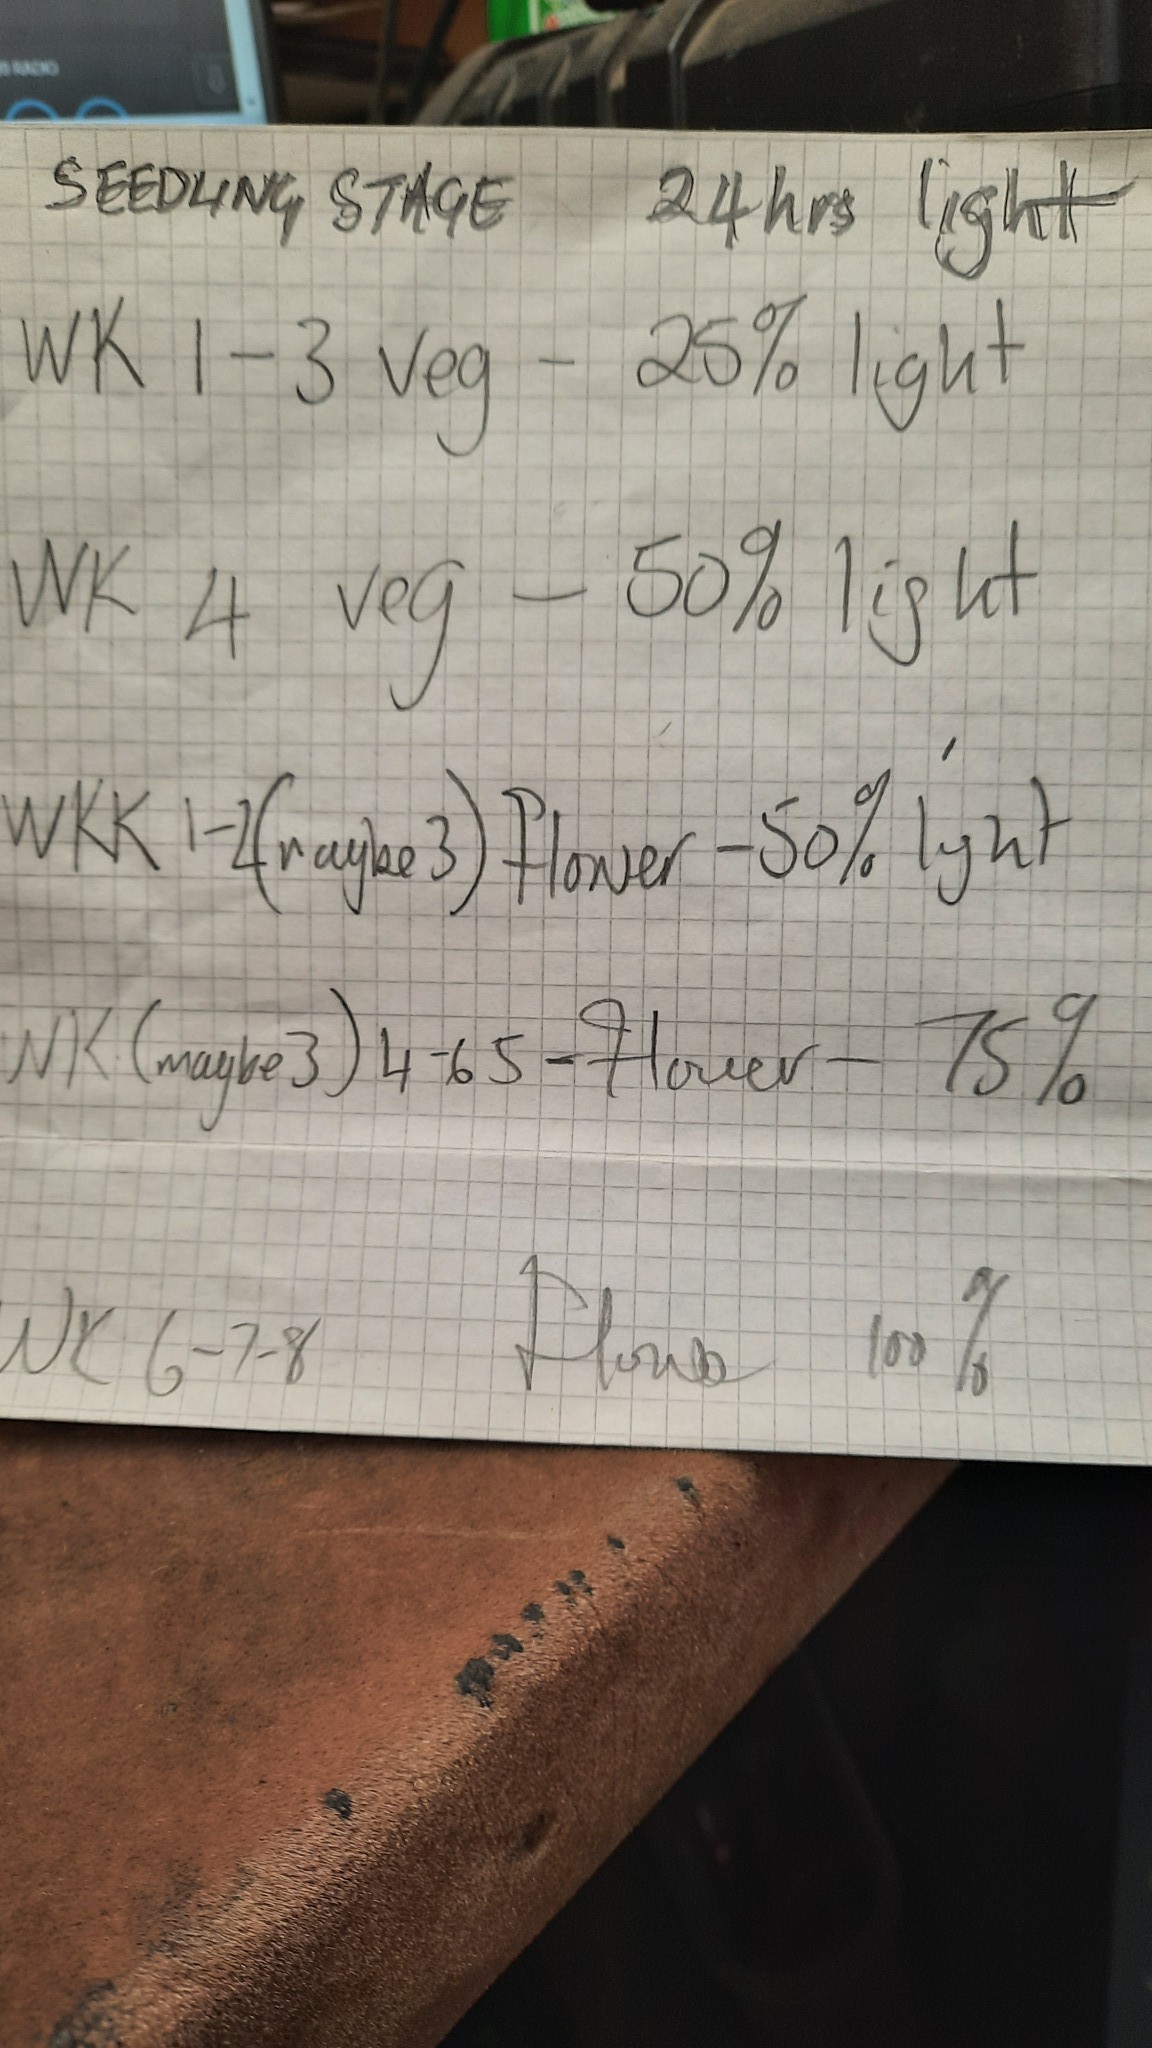 RADIO
SEEDLING STAGE 24hrs light
WK 1-3 veg - 25% light
WK 4 veg - 50% light
WKK 1-2 (maybe 3) Flower - 50% light
WK (maybe 3) 4-65 - Flower - 75%
WK 6-7-8 Flowe 100%